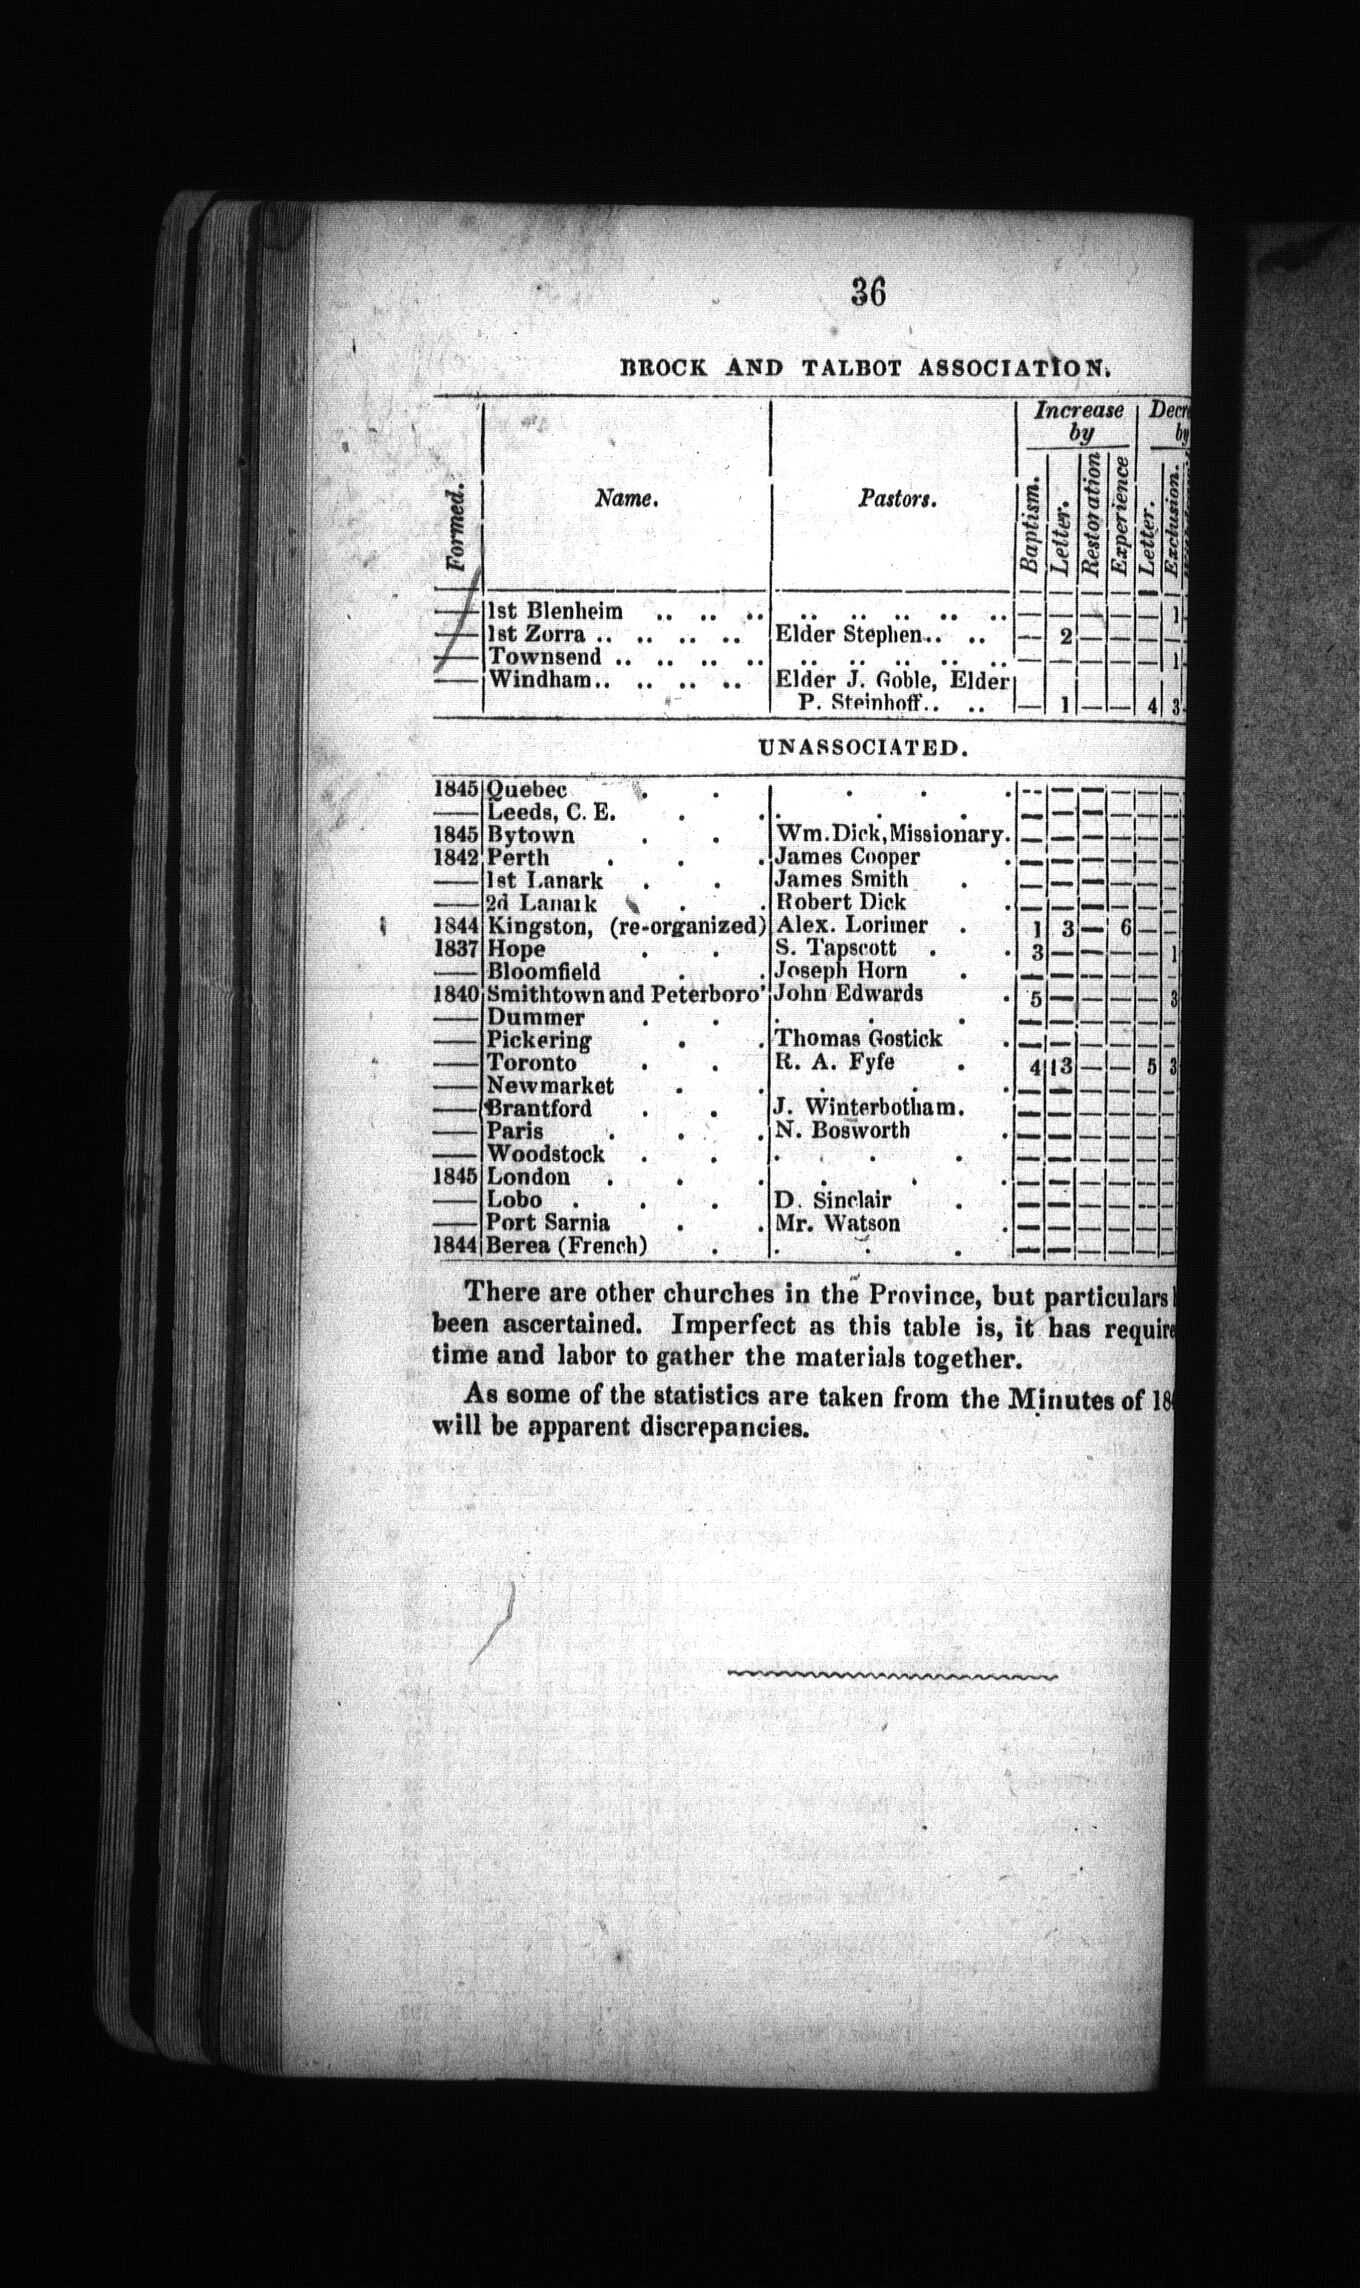 36
BROCK AND TALBOT ASSOCIATION.
Formed. Name. Pastors. Increase by Decre by
Baptism. Letter. Restoration Experience Letter. Exclusion.
—— 1st Blenheim .. .. .. .. .. .. .. .. — — — — — 1
—— 1st Zorra .. .. .. .. Elder Stephen.. .. — 2 — — — —
—— Townsend .. .. .. .. .. .. .. .. .. — — — — — 1
—— Windham.. .. .. .. Elder J. Goble, Elder
P. Steinhoff.. .. — 1 — — 4 3
UNASSOCIATED.
1845 Quebec . . . . . — — — — — —
—— Leeds, C. E. . . . . . — — — — — —
1845 Bytown . . Wm. Dick, Missionary. — — — — — —
1842 Perth . . . James Cooper . — — — — — —
—— 1st Lanark . . James Smith . — — — — — —
—— 2d Lanark . . Robert Dick . — — — — — —
1844 Kingston, (re-organized) Alex. Lorimer . 1 3 — 6 — —
1837 Hope . . S. Tapscott . . 3 — — — — 1
—— Bloomfield . . Joseph Horn . — — — — — —
1840 Smithtown and Peterboro' John Edwards . 5 — — — — 3
—— Dummer . . . . . — — — — — —
—— Pickering . . Thomas Gostick . — — — — — —
—— Toronto . . R. A. Fyfe . 4 13 — — 5 3
—— Newmarket . . . . . — — — — — —
—— Brantford . . J. Winterbotham. — — — — — —
—— Paris . . . N. Bosworth . — — — — — —
—— Woodstock . . . . . — — — — — —
1845 London . . . . . . — — — — — —
—— Lobo . . . D. Sinclair . — — — — — —
—— Port Sarnia . . Mr. Watson . — — — — — —
1844 Berea (French) . . . . — — — — — —
There are other churches in the Province, but particulars
been ascertained. Imperfect as this table is, it has require
time and labor to gather the materials together.
As some of the statistics are taken from the Minutes of 18
will be apparent discrepancies.